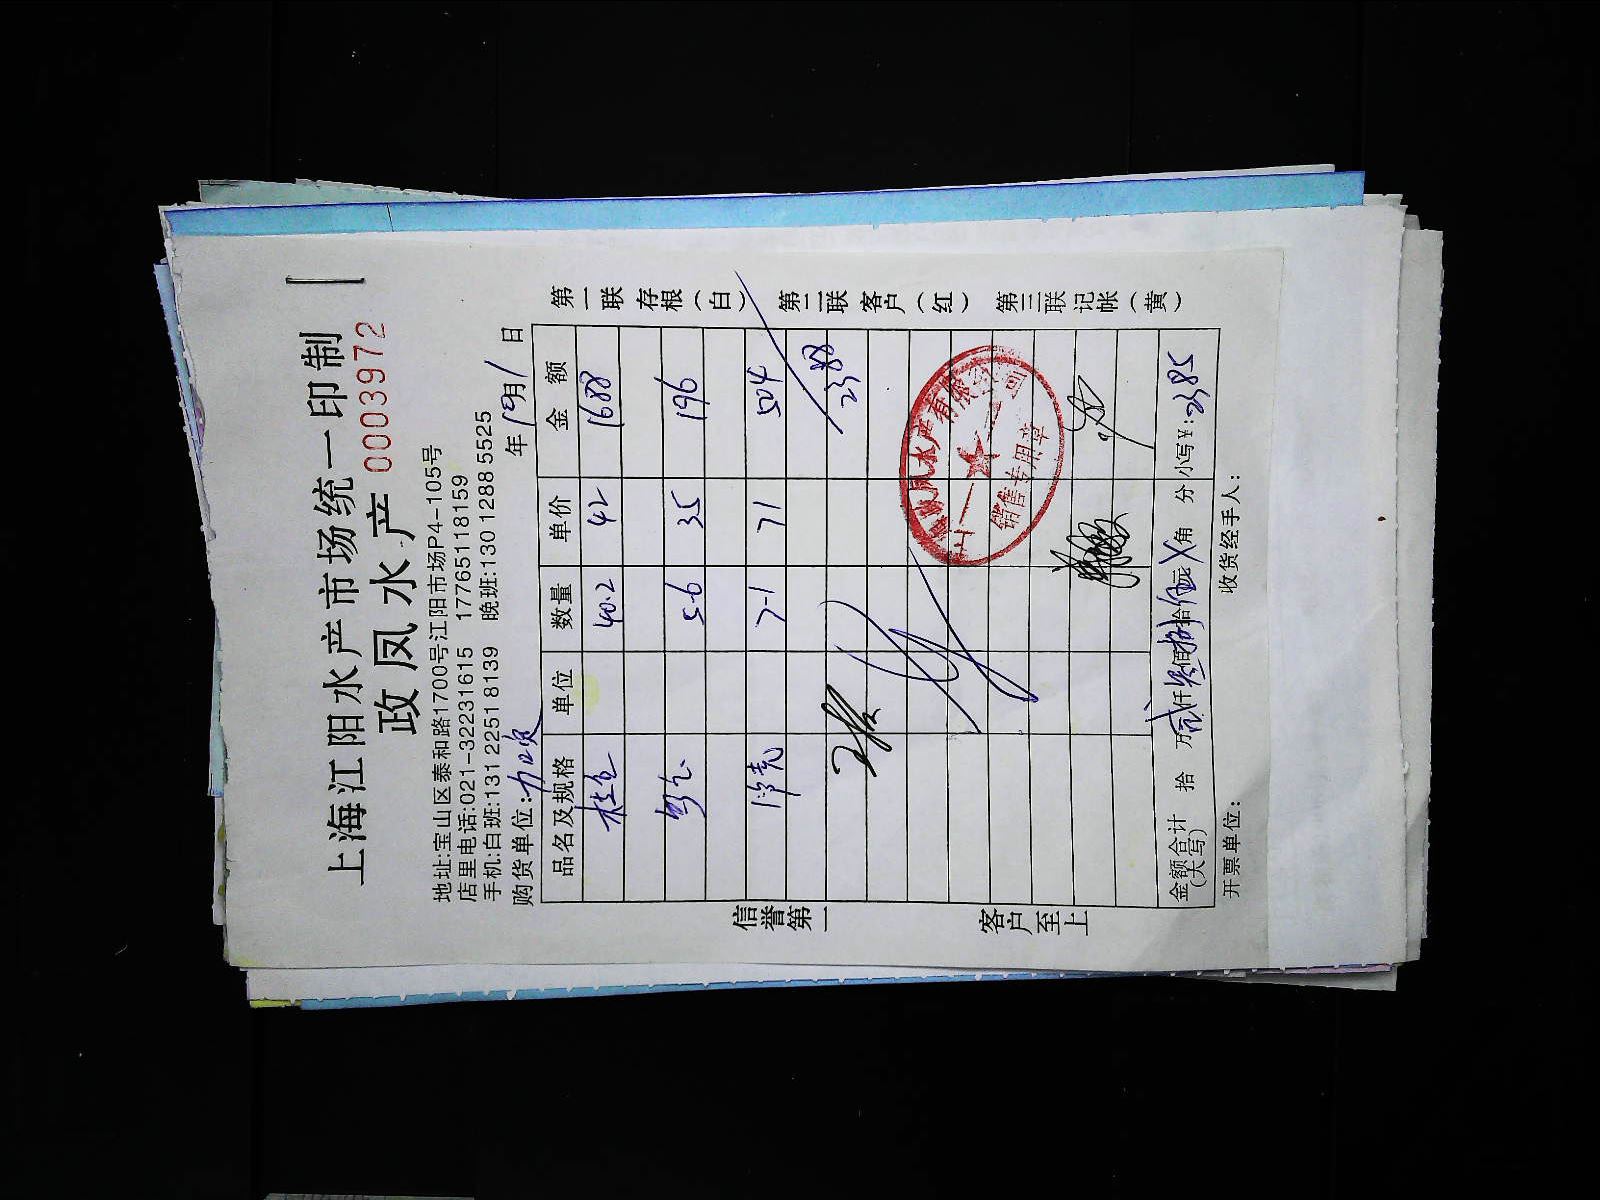 上海江阳水产市场统一印制
政凤水产 0003972
地址:宝山区泰和路1700号江阳市场P4-105号
店里电话:021-32231615 17765118159
手机:白班:131 2251 8139 晚班:130 1288 5525
购货单位: 年 10月 1 日
品名及规格 单位 数量 单价 金额
40.2 42 1688
5.6 35 196
7.1 71 504
2388
金额合计(大写) 拾 万 贰仟叁佰捌拾伍元 X 角 分 小写¥:2385
开票单位: 收货经手人:
信誉第一 客户至上
第一联存根(白) 第二联客户(红) 第三联记帐(黄)
水产有限公司
销售专用章